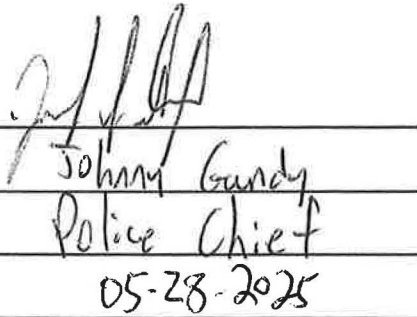 Johnny Gandy
Police Chief
05-28-2025